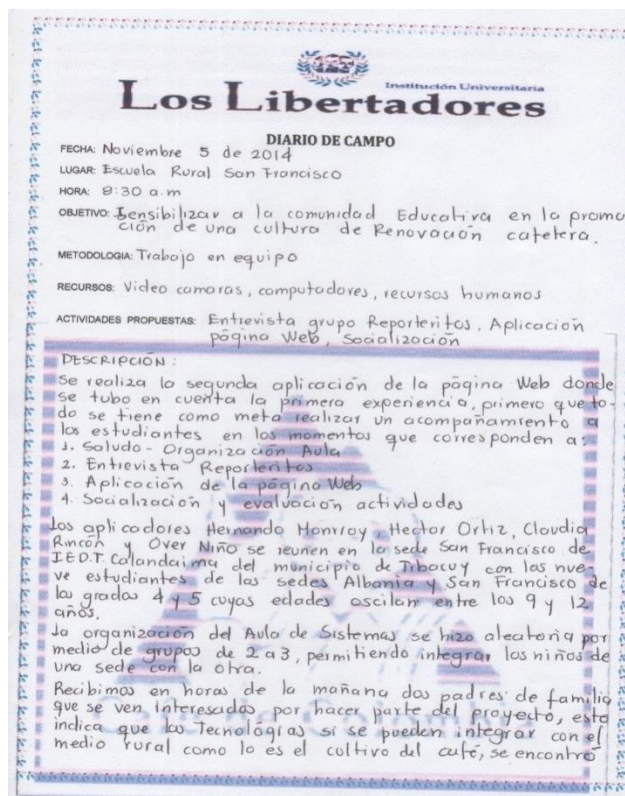 Institución Universitaria
Los Libertadores
DIARIO DE CAMPO
FECHA: Noviembre 5 de 2014
LUGAR: Escuela Rural San Francisco
HORA: 8:30 a.m
OBJETIVO: Sensibilizar a la comunidad Educativa en la promo
ción de una cultura de Renovación cafetera.
METODOLOGIA: Trabajo en equipo
RECURSOS: Video camaras, computadores, recursos humanos
ACTIVIDADES PROPUESTAS: Entrevista grupo Reporteritos, Aplicación
página Web, Socialización
DESCRIPCIÓN:
Se realiza la segunda aplicación de la página Web donde
se tubo en cuenta la primera experiencia, primero que to-
do se tiene como meta realizar un acompañamiento a
los estudiantes en los momentos que corresponden a:
1. Saludo - Organización Aula
2. Entrevista Reporteritos
3. Aplicación de la página Web
4. Socialización y evaluación actividades
Los aplicadores Hernando Monroy, Hector Ortiz, Claudia
Rincón y Over Niño se reunen en la sede San Francisco de
IED.T. Calandaima del municipio de Tibacuy con los nue-
ve estudiantes de las sedes Albania y San Francisco de
los grados 4 y 5 cuyas edades oscilan entre los 9 y 12
años.
La organización del Aula de Sistemas se hizo aleatoria por
medio de grupos de 2 a 3, permitiendo integrar los niños de
una sede con la otra.
Recibimos en horas de la mañana dos padres de familia
que se ven interesados por hacer parte del proyecto, esto
indica que las Tecnológias si se pueden integrar con el
medio rural como lo es el cultivo del café, se encontró